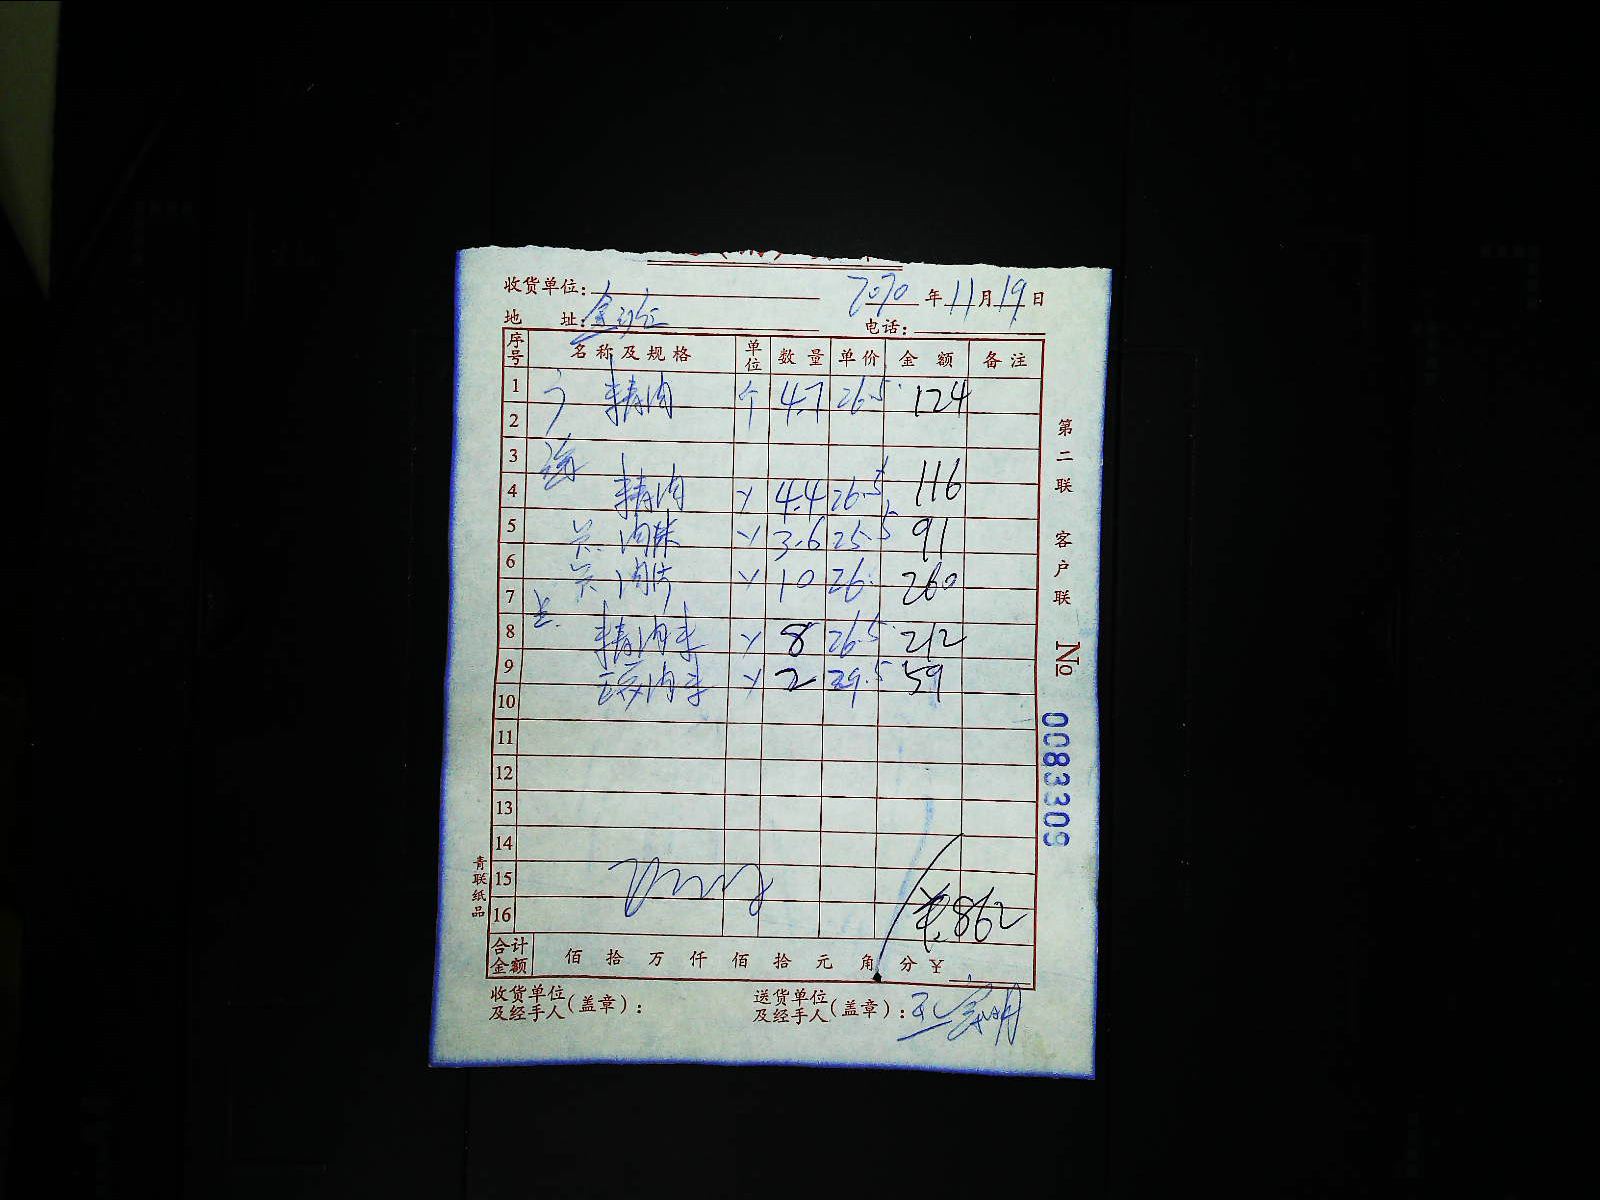 收货单位: 2020年11月19日
地 址: 电话:
序号 名称及规格 单位 数量 单价 金额 备注
1 精肉 个 4.7 26.5 124
2
3
4 精肉 4.4 26.5 116
5 肉 3.6 25.5 91
6 肉片 10 26. 260
7
8 精肉 8 26.5 212
9 肉 2 29.5 59
10
11
12
13
14
15
16 ¥:862
合计金额 佰 拾 万 仟 佰 拾 元 角 分 ¥
收货单位及经手人(盖章): 送货单位及经手人(盖章):
第二联 客户联
No 0083309
青联纸品